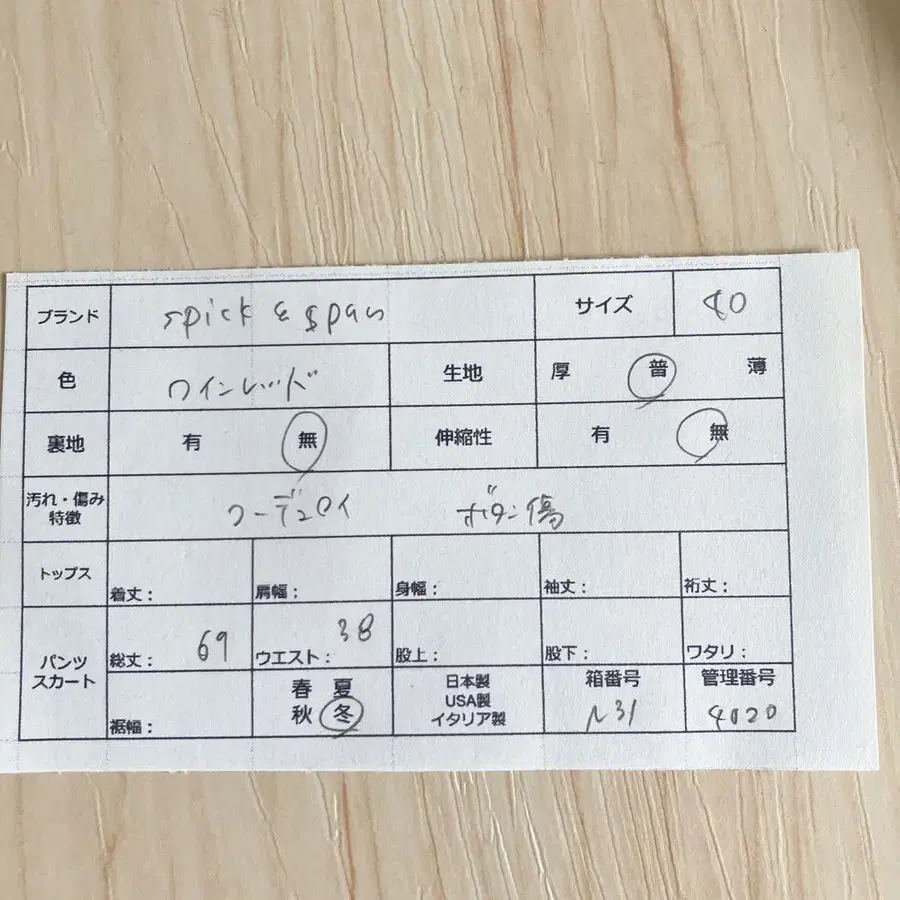 ブランド spick & span サイズ 40
色 ワインレッド 生地 厚 普 薄
裏地 有 無 伸縮性 有 無
汚れ・傷み
特徴 コーデュロイ ボタン傷
トップス 着丈： 肩幅： 身幅： 袖丈： 裄丈：
パンツ
スカート 総丈： 69 ウエスト： 38 股上： 股下： ワタリ：
裾幅： 春 夏
秋 冬
日本製
USA製
イタリア製
箱番号
N31
管理番号
4020